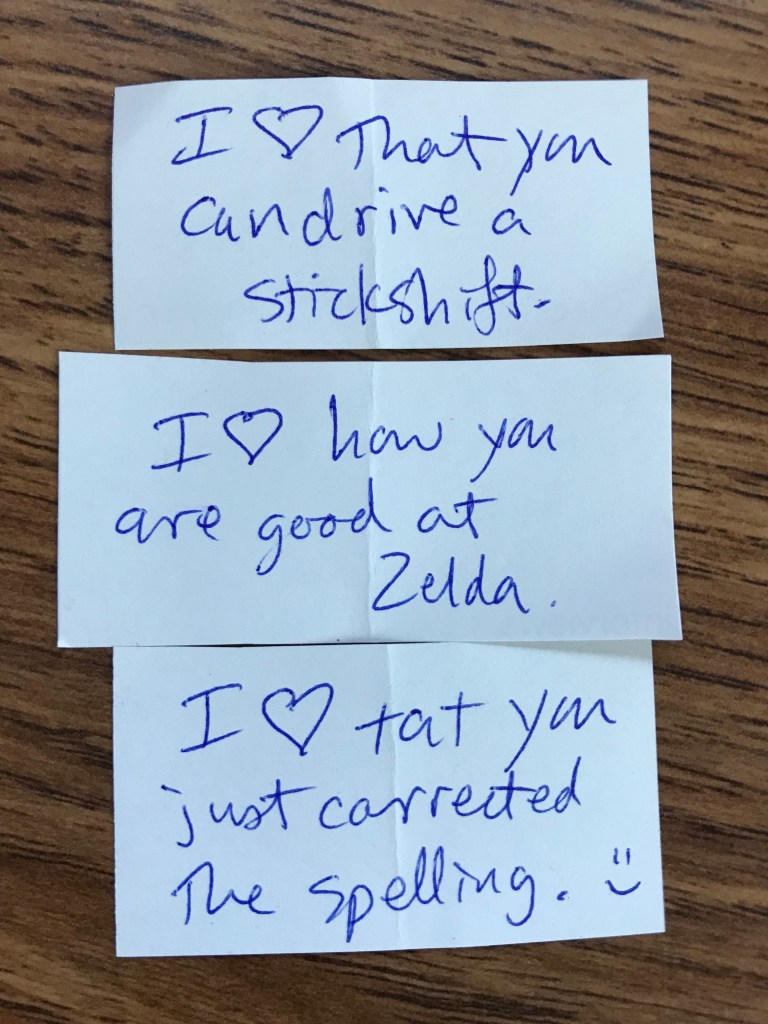 I ♡ That you
can drive a
stickshift.
I ♡ how you
are good at
Zelda.
I ♡ tat you
just corrected
The spelling. :)